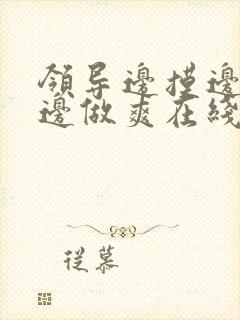 领导邊摸邊
邊做爽在綫
從慕